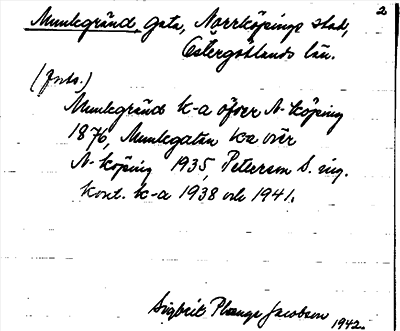 2
Munkegränd, gata, Norrköpings stad,
Östergötlands län.
(forts.)
Munkegränd k-a öfver N-köping
1876, Munkegatan k-a över
N-köping 1935, Peterson S. ing.
kont. k-a 1938 och 1941.
Sigbrit Plange Jacobson
1942.